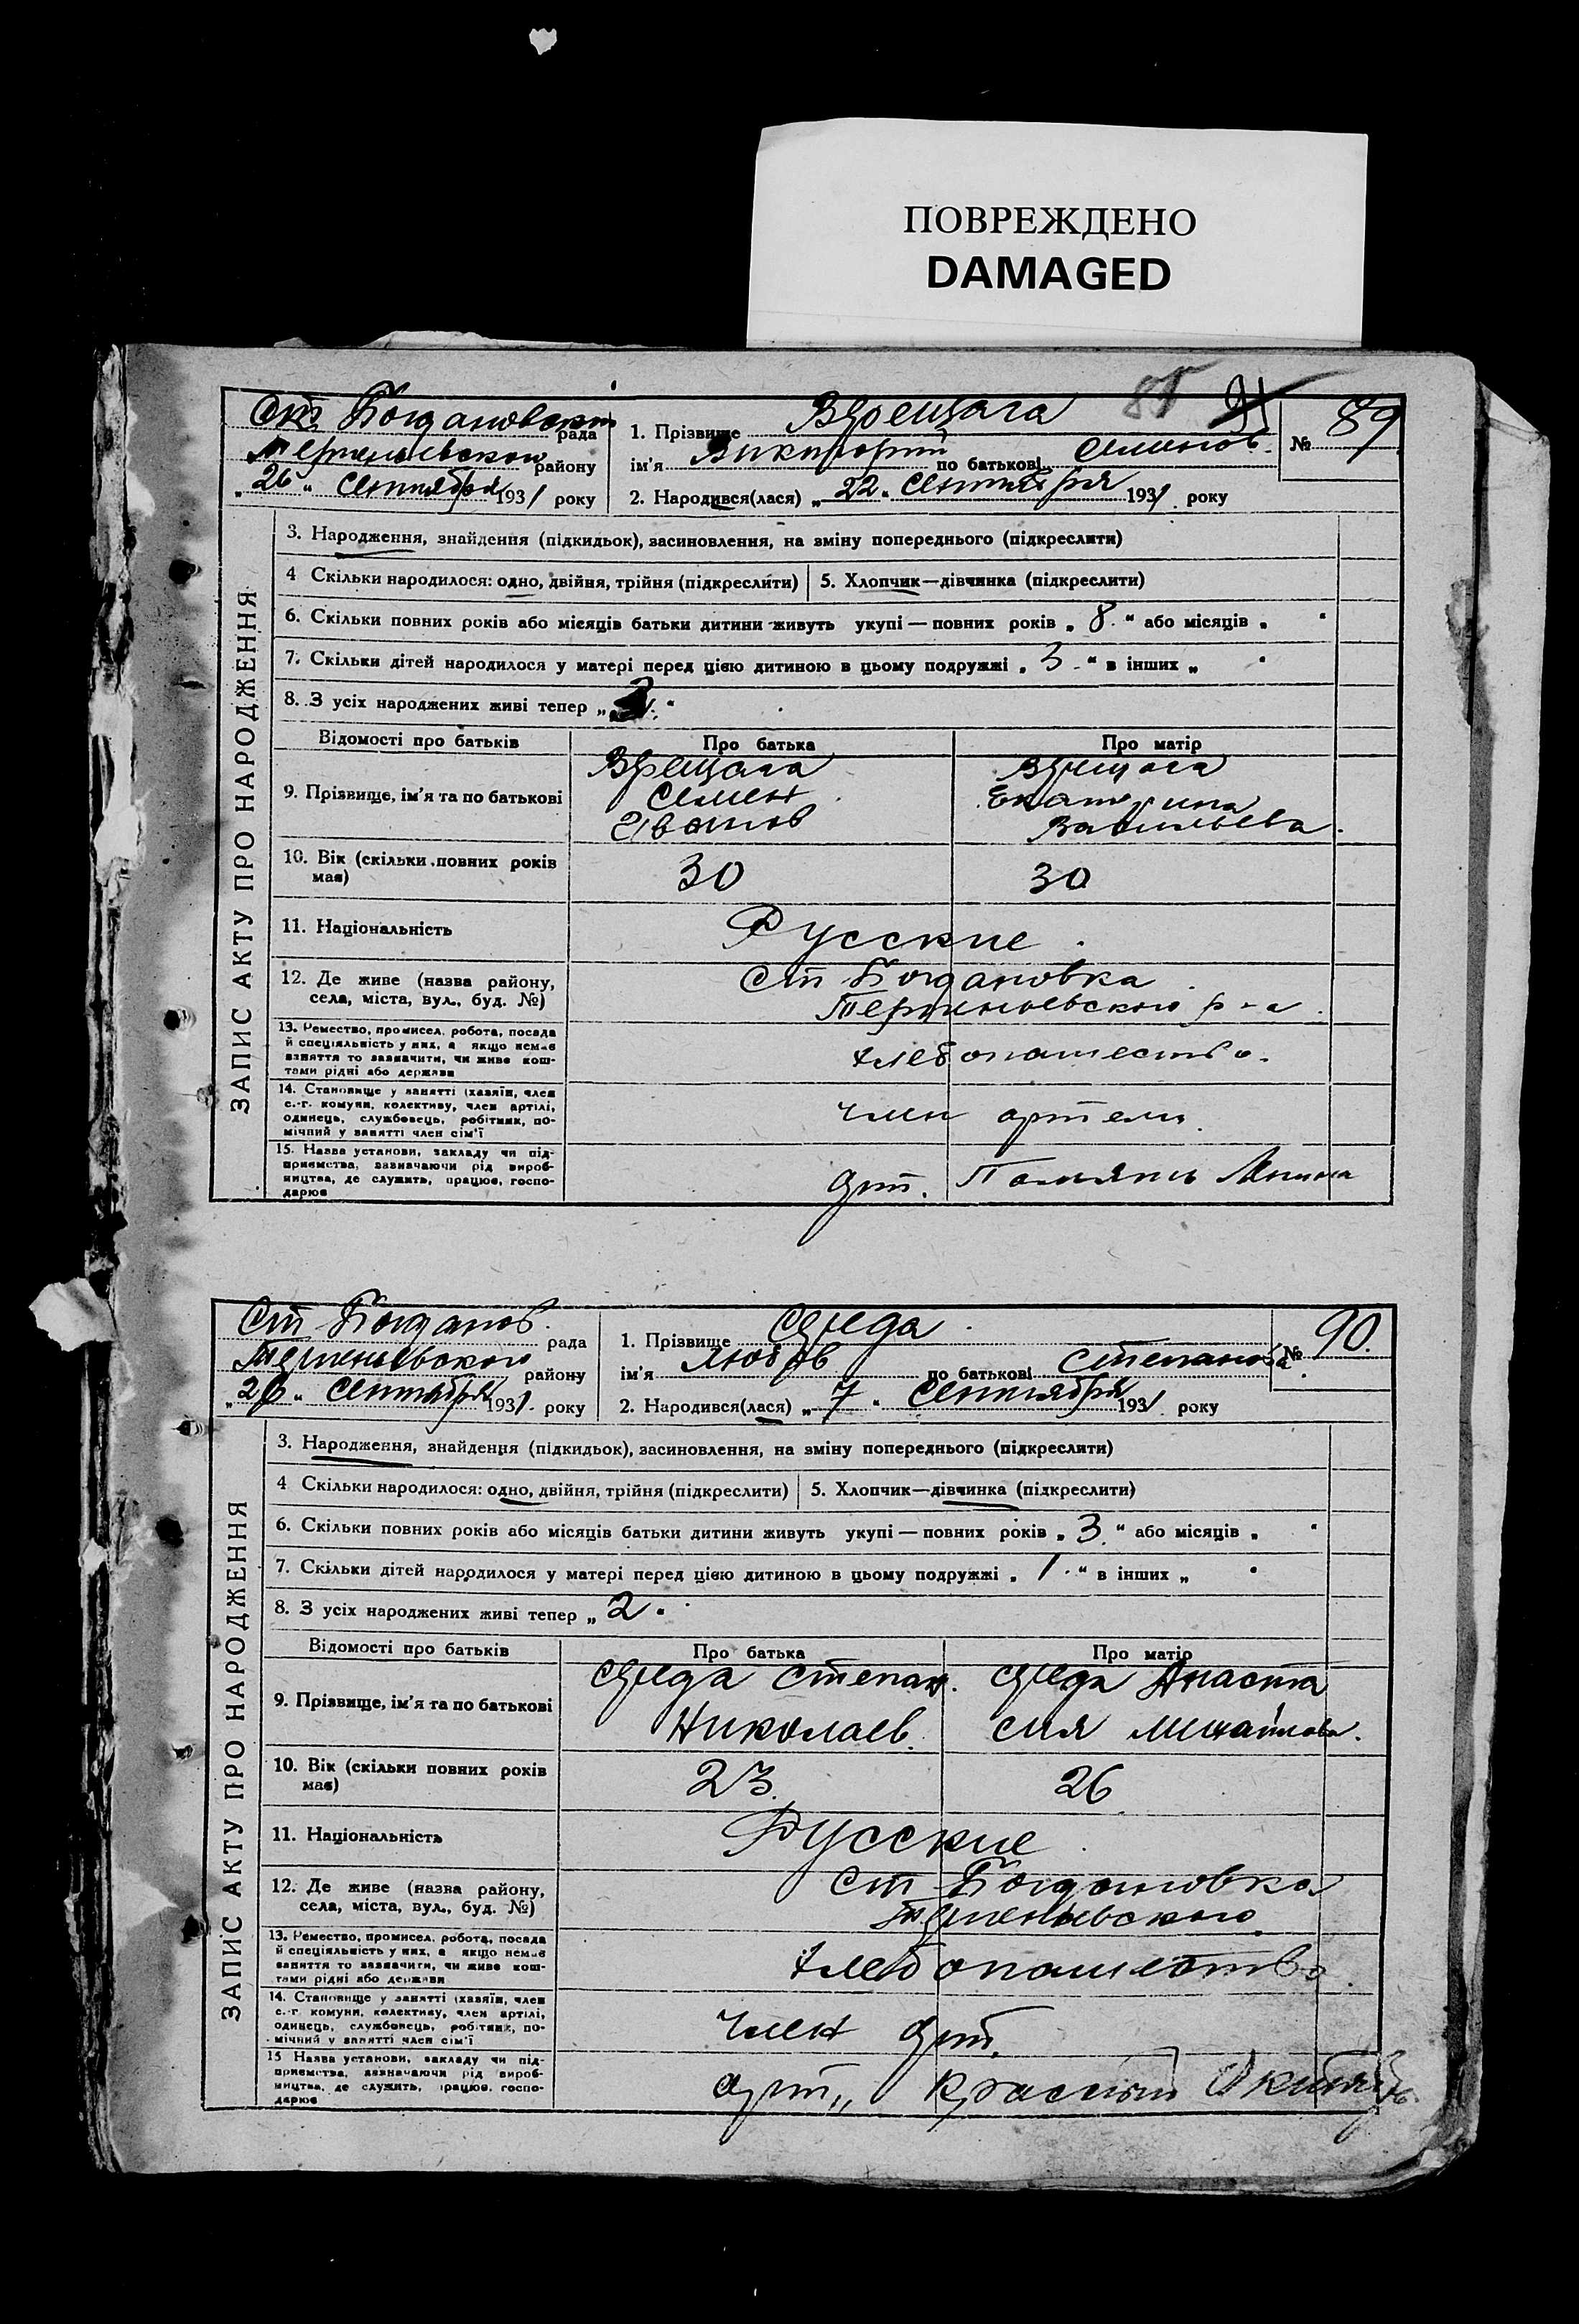 ПОВРЕЖДЕНО
DAMAGED
85
Ст Богдановской рада
района району
„26“ Сентября 1931 року
1. Прізвище Верещага
ім'я Викторий по батькові Семенов.
№ 89
2. Народився(лася) „22“ Сентября 1931 року
ЗАПИС АКТУ ПРО НАРОДЖЕННЯ
3. Народження, знайдення (підкидьок), засиновлення, на зміну попереднього (підкреслити)
4 Скільки народилося: одно, двійня, трійня (підкреслити)
5. Хлопчик—дівчинка (підкреслити)
6. Скільки повних років або місяців батьки дитини живуть укупі — повних років „8“ або місяців „ “
7. Скільки дітей народилося у матері перед цією дитиною в цьому подружжі „3“ в інших „ “
8. З усіх народжених живі тепер „ “
Відомості про батьків Про батька Про матір
9. Прізвище, ім'я та по батькові
Верещага
Семен
Иванов
Верещага
Екатерина
Васильева.
10. Вік (скільки повних років має)
30 30
11. Національність
Русские.
12. Де живе (назва району, села, міста, вул., буд. №)
Ст Богдановка
р-а.
13. Ремество, промисел, робота, посада й спеціяльність у них, а якщо немає заняття то зазначити, чи живе коштами рідні або держави
хлебопашество.
14. Становище у занятті (хазяїн, член с.-г. комуни, колективу, член артілі, одинець, службовець, робітник, помічний у занятті член сім'ї
член артели.
15. Назва установи, закладу чи підприємства, зазначаючи рід виробництва, де служить, працює, господарює
Арт. Память Ленина
Ст Богданов. рада
району
„26“ Сентября 1931. року
1. Прізвище Середа.
ім'я Любовь по батькові Степанова
№ 90.
2. Народився(лася) „7“ Сентября 1931 року
ЗАПИС АКТУ ПРО НАРОДЖЕННЯ
3. Народження, знайдення (підкидьок), засиновлення, на зміну попереднього (підкреслити)
4 Скільки народилося: одно, двійня, трійня (підкреслити)
5. Хлопчик—дівчинка (підкреслити)
6. Скільки повних років або місяців батьки дитини живуть укупі — повних років „3“ або місяців „ “
7. Скільки дітей народилося у матері перед цією дитиною в цьому подружжі „1“ в інших „ “
8. З усіх народжених живі тепер „2“
Відомості про батьків Про батька Про матір
9. Прізвище, ім'я та по батькові
Середа Степан.
Николаев.
Середа Анаста
сия Михайлова.
10. Вік (скільки повних років має)
23. 26
11. Національність
Русские.
12. Де живе (назва району, села, міста, вул., буд. №)
Ст Богдановка
13. Ремество, промисел, робота, посада й спеціяльність у них, а якщо немає заняття то зазначити, чи живе коштами рідні або держави
хлебопашество.
14. Становище у занятті (хазяїн, член с.-г. комуни, колективу, член артілі, одинець, службовець, робітник, помічний у занятті член сім'ї
член арт.
15 Назва установи, закладу чи підприємства, зазначаючи рід виробництва, де служить, працює, господарює
арт„ Красный Октябрь